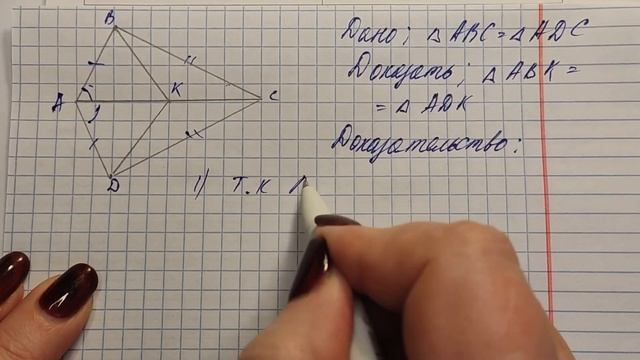 B
A
K
C
D
Дано; △ ABC = △ ADC
Доказать; △ ABK =
= △ ADK
Доказательство:
1) т.к